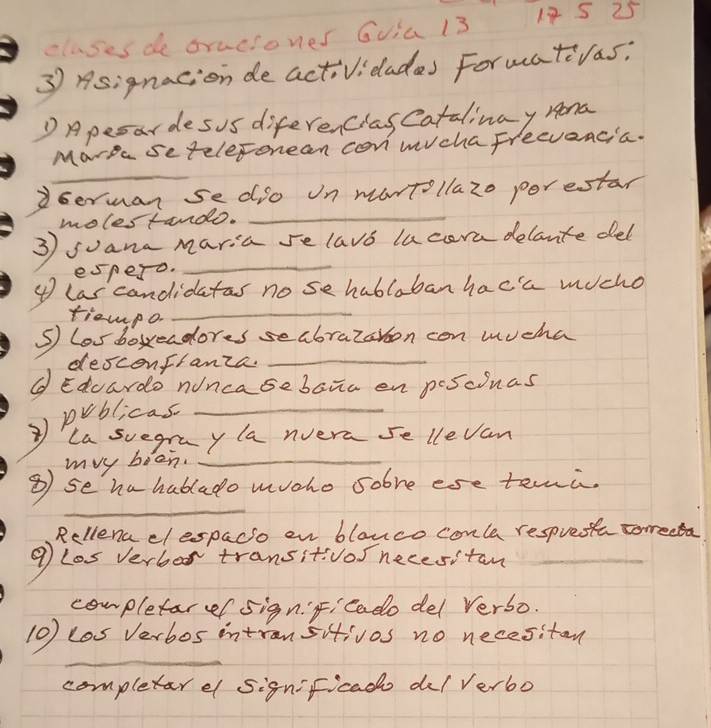 clases de oraciones Guia 13 17 5 25
3) Asignación de actividades Formativas:
1) Apesar de sus diferencias Catalina y Ana
Maria se telefonean con mucha frecuencia.
2 German se dio un martillazo por estar
molestando.
3) Juana Maria se lavó la cara delante del
espejo.
4) Las candidatas no se hablaban hacia mucho
tiempo
5) Los boxeadores se abrazaron con mucha
desconfianza.
6) Eduardo nunca se baña en piscinas
publicas.
7) La suegra y la nuera se llevan
muy bien.
8) se ha hablado mucho sobre ese tema.
Rellena el espacio en blanco con la respuesta correcta
9) Los verbos transitivos necesitan
completar el significado del verbo.
10) Los verbos intransitivos no necesitan
completar el significado del verbo